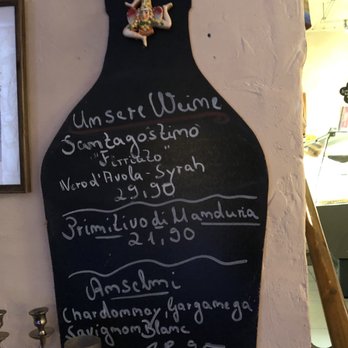 Unsere Weine
Santagostino
"Firriato"
Nero d'Avola - Syrah
29,90
Primitivo di Manduria
21,90
Anselmi
Chardonnay Gargamega
Sauvignon Blanc